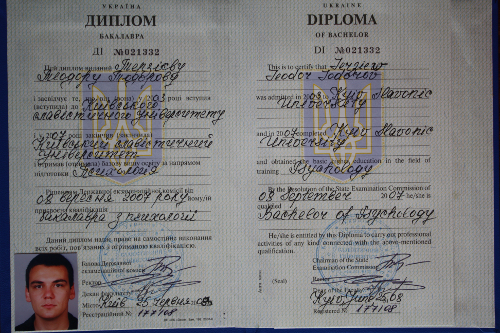 УКРАЇНА
ДИПЛОМ
БАКАЛАВРА
ДІ №021332
Цей диплом виданий Терзієву
Теодору Тодорову
і засвідчує, що він (вона) у 2003 році вступив
(вступила) до Київського
славістичного університету
і у 2007 році закінчив (закінчила)
Київський славістичний
університет
отримав (отримала) базову вищу освіту за напрямом
підготовки Психологія
Рішенням Державної екзаменаційної комісії від
08 вересня 2007 року йому/їй
присвоєно кваліфікацію
бакалавра з психології
Даний диплом надає право на самостійне виконання
всіх робіт, пов'язаних з отриманою кваліфікацією.
Голова Державної
екзаменаційної комісії
Ректор
Місто Київ 25 червня 08
Реєстраційний № 1771/08
UKRAINE
DIPLOMA
OF BACHELOR
DI №021332
This is to certify that Terziev
Teodor Todorov
was admitted in 2003 Kyiv Slavonic
University
and in 2007 completed Kyiv Slavonic
University
and obtained the basic higher education in the field of
training Psychology
By the Resolution of the State Examination Commission of
08 September 2007 he/she is
qualified
Bachelor of Psychology
He/she is entitled by the Diploma to carry out professional
activities of any kind connected with the above-mentioned
qualification.
Chairman of the State
Examination Commission
Rector
(Seal)
Kyiv, June 25, 08
Registered № 1771/08